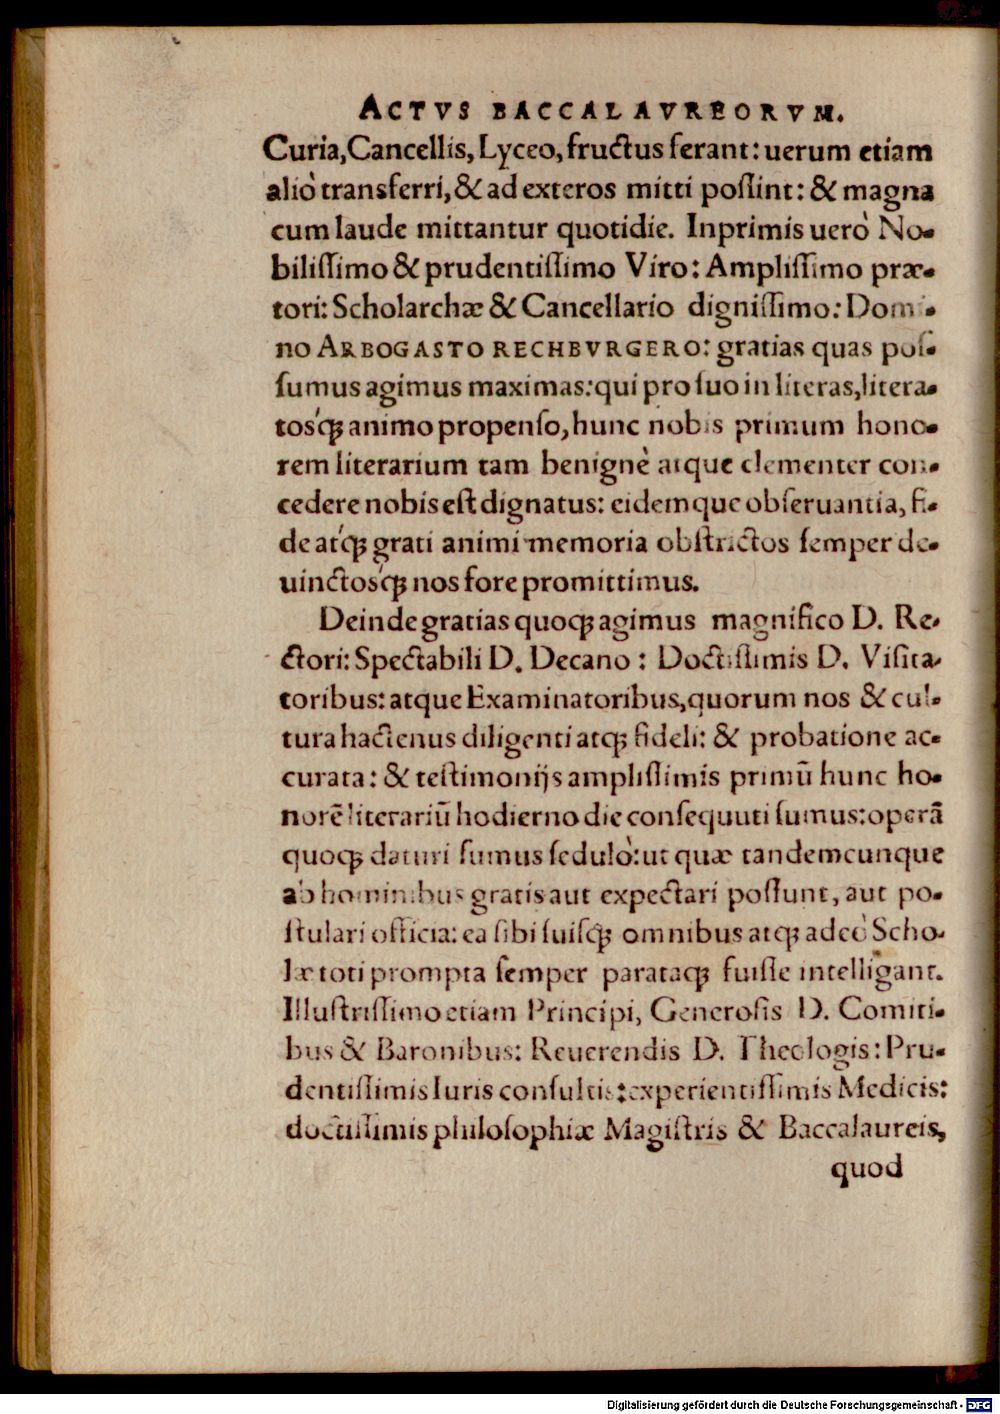 ACTVS BACCALAVREORVM.
Curia, Cancellis, Lyceo, fructus ferant: uerum etiam
aliò transferri, & ad exteros mitti possint: & magna
cum laude mittantur quotidie. Inprimis uerò No-
bilissimo & prudentissimo Viro: Amplissimo præ-
tori: Scholarchæ & Cancellario dignissimo: Domi-
no ARBOGASTO RECHBVRGERO: gratias quas pos-
sumus agimus maximas: qui pro suo in literas, litera-
tosq́; animo propenso, hunc nobis primum hono-
rem literarium tam benignè atque clementer con-
cedere nobis est dignatus: eidemque obseruantia, fi-
de atq́; grati animi memoria obstrictos semper de-
uinctosq́; nos fore promittimus.
Deinde gratias quoq; agimus magnifico D. Re-
ctori: Spectabili D. Decano: Doctissimis D. Visita-
toribus: atque Examinatoribus, quorum nos & cul-
tura hactenus diligenti atq; fideli: & probatione ac-
curata: & testimonijs amplissimis primū hunc ho-
norē literariū hodierno die consequuti sumus: operā
quoq; daturi sumus sedulò: ut quæ tandemcunque
ab hominibus gratis aut expectari possunt, aut po-
stulari officia: ea sibi suisq́; omnibus atq; adeò Scho-
læ toti prompta semper parataq; fuisse intelligant.
Illustrissimo etiam Principi, Generosis D. Comiti-
bus & Baronibus: Reuerendis D. Theologis: Pru-
dentissimis Iuris consultis: experientissimis Medicis:
doctissimis philosophiæ Magistris & Baccalaureis,
quod
Digitalisierung gefördert durch die Deutsche Forschungsgemeinschaft - DFG